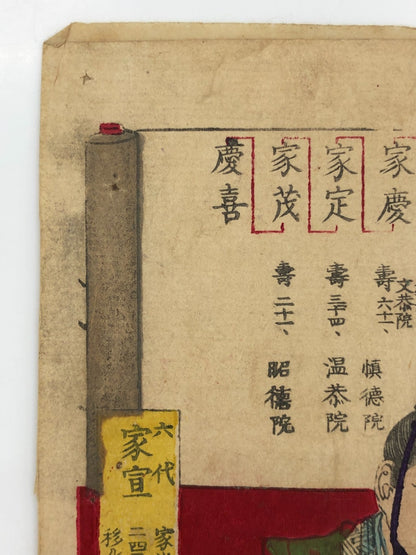 家慶
壽六十一、
慎德院
家定
壽三十四、
温恭院
家茂
壽二十一、
昭德院
慶喜
文恭院
六代
家宣